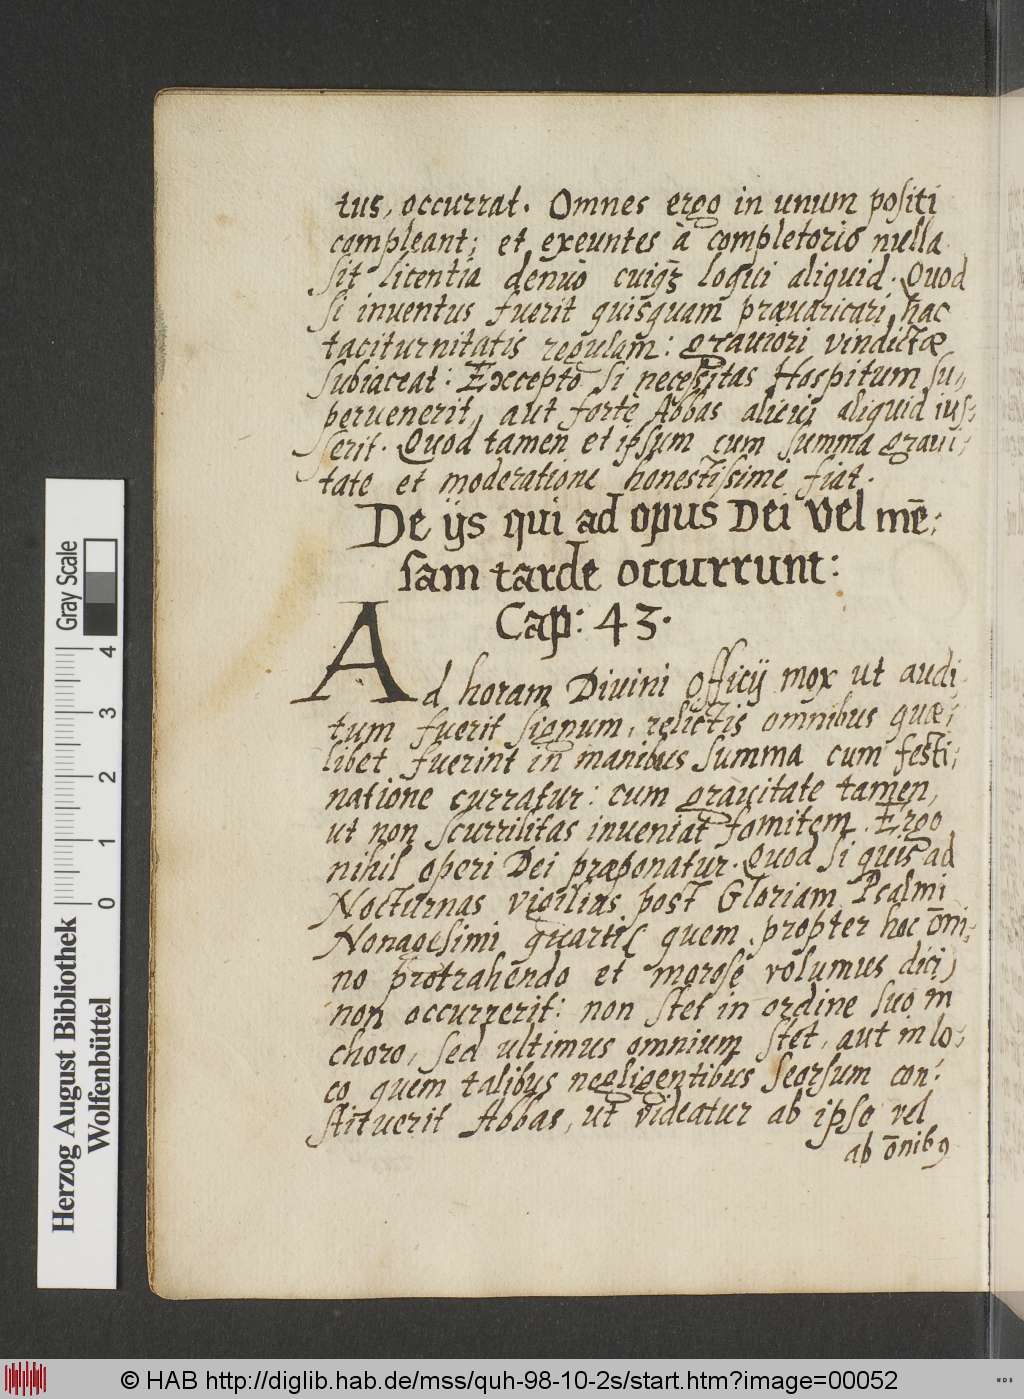 tus, occurrat. Omnes ergo in unum positi
compleant; et exeuntes à completorio nulla
sit licentia denuò cuiqȝ loqui aliquid. Quod
si inventus fuerit quisquam præuaricari hac
taciturnitatis regulam: grauiori vindictæ
subiaceat: Excepto si necessitas Hospitum su,,
peruenerit, aut forte Abbas alicui aliquid ius,,
serit. Quod tamen et ipsum cum summa graui,,
tate et moderatione honestissime fiat.
De ijs qui ad opus Dei vel mē,,
sam tarde occurrunt:
Cap: 43.
Ad horam Diuini officij mox ut audi,,
tum fuerit signum, relictis omnibus quæ,,
libet fuerint in manibus summa cum festi,,
natione curratur: cum grauitate tamen,
ut non scurrilitas inueniat fomitem. Ergo
nihil operi Dei præponatur. Quod si quis ad
Nocturnas vigilias post Gloriam Psalmi
Nonagesimi quarti( quem propter hoc ōni,,
no protrahendo et morose volumus dici)
non occurrerit: non stet in ordine suo in
choro, sed ultimus omnium stet, aut in lo,,
co quem talibus negligentibus seorsum con,,
stituerit Abbas, ut videatur ab ipso vel
ab ōnibꝯ
Herzog August Bibliothek
Wolfenbüttel
0 1 2 3 4
Gray Scale
© HAB http://diglib.hab.de/mss/quh-98-10-2s/start.htm?image=00052